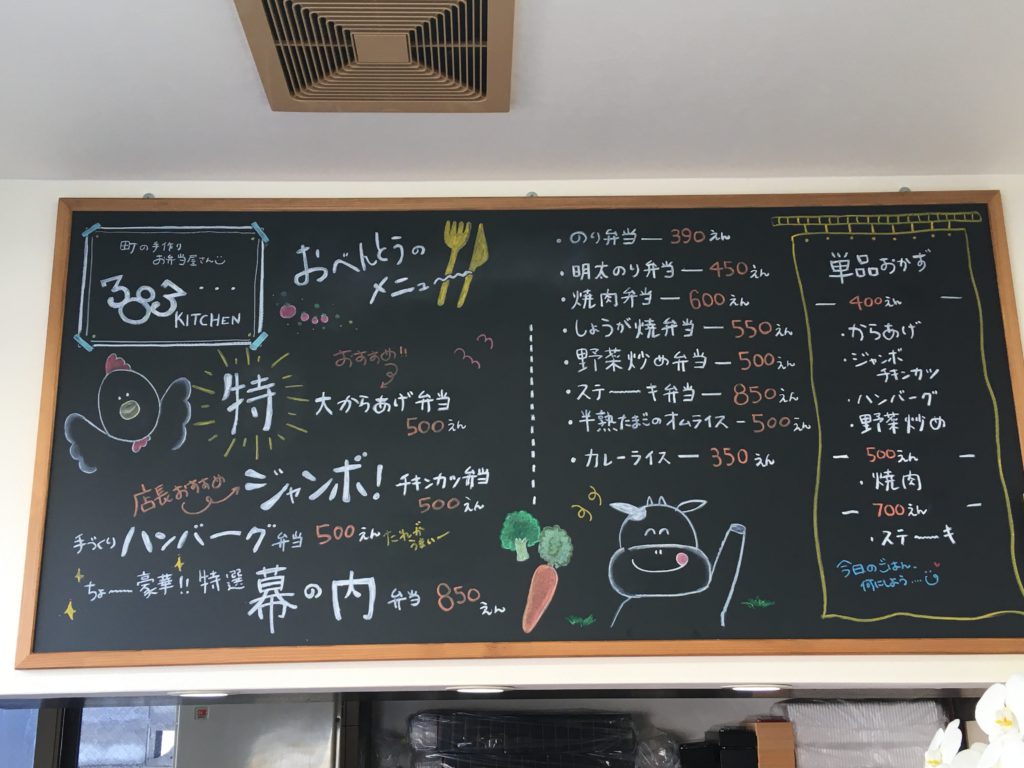 町の手作り
お弁当屋さん
383...
KITCHEN
おべんとうの
メニュ〜
おすすめ!!
特 大からあげ弁当
500えん
店長おすすめ ジャンボ! チキンカツ弁当
500えん
手づくり ハンバーグ弁当 500えん たれがうまいー
ちょ〜豪華!! 特選 幕の内 弁当 850えん
・のり弁当 ー 390えん
・明太のり弁当 ー 450えん
・焼肉弁当 ー 600えん
・しょうが焼弁当 ー 550えん
・野菜炒め弁当 ー 500えん
・ステーキ弁当 ー 850えん
・半熟たまごのオムライス - 500えん
・カレーライス ー 350えん
単品おかず
ー 400えん ー
・からあげ
・ジャンボ
チキンカツ
・ハンバーグ
・野菜炒め
ー 500えん ー
・焼肉
ー 700えん ー
・ステーキ
今日のごはん、
何にしよう....